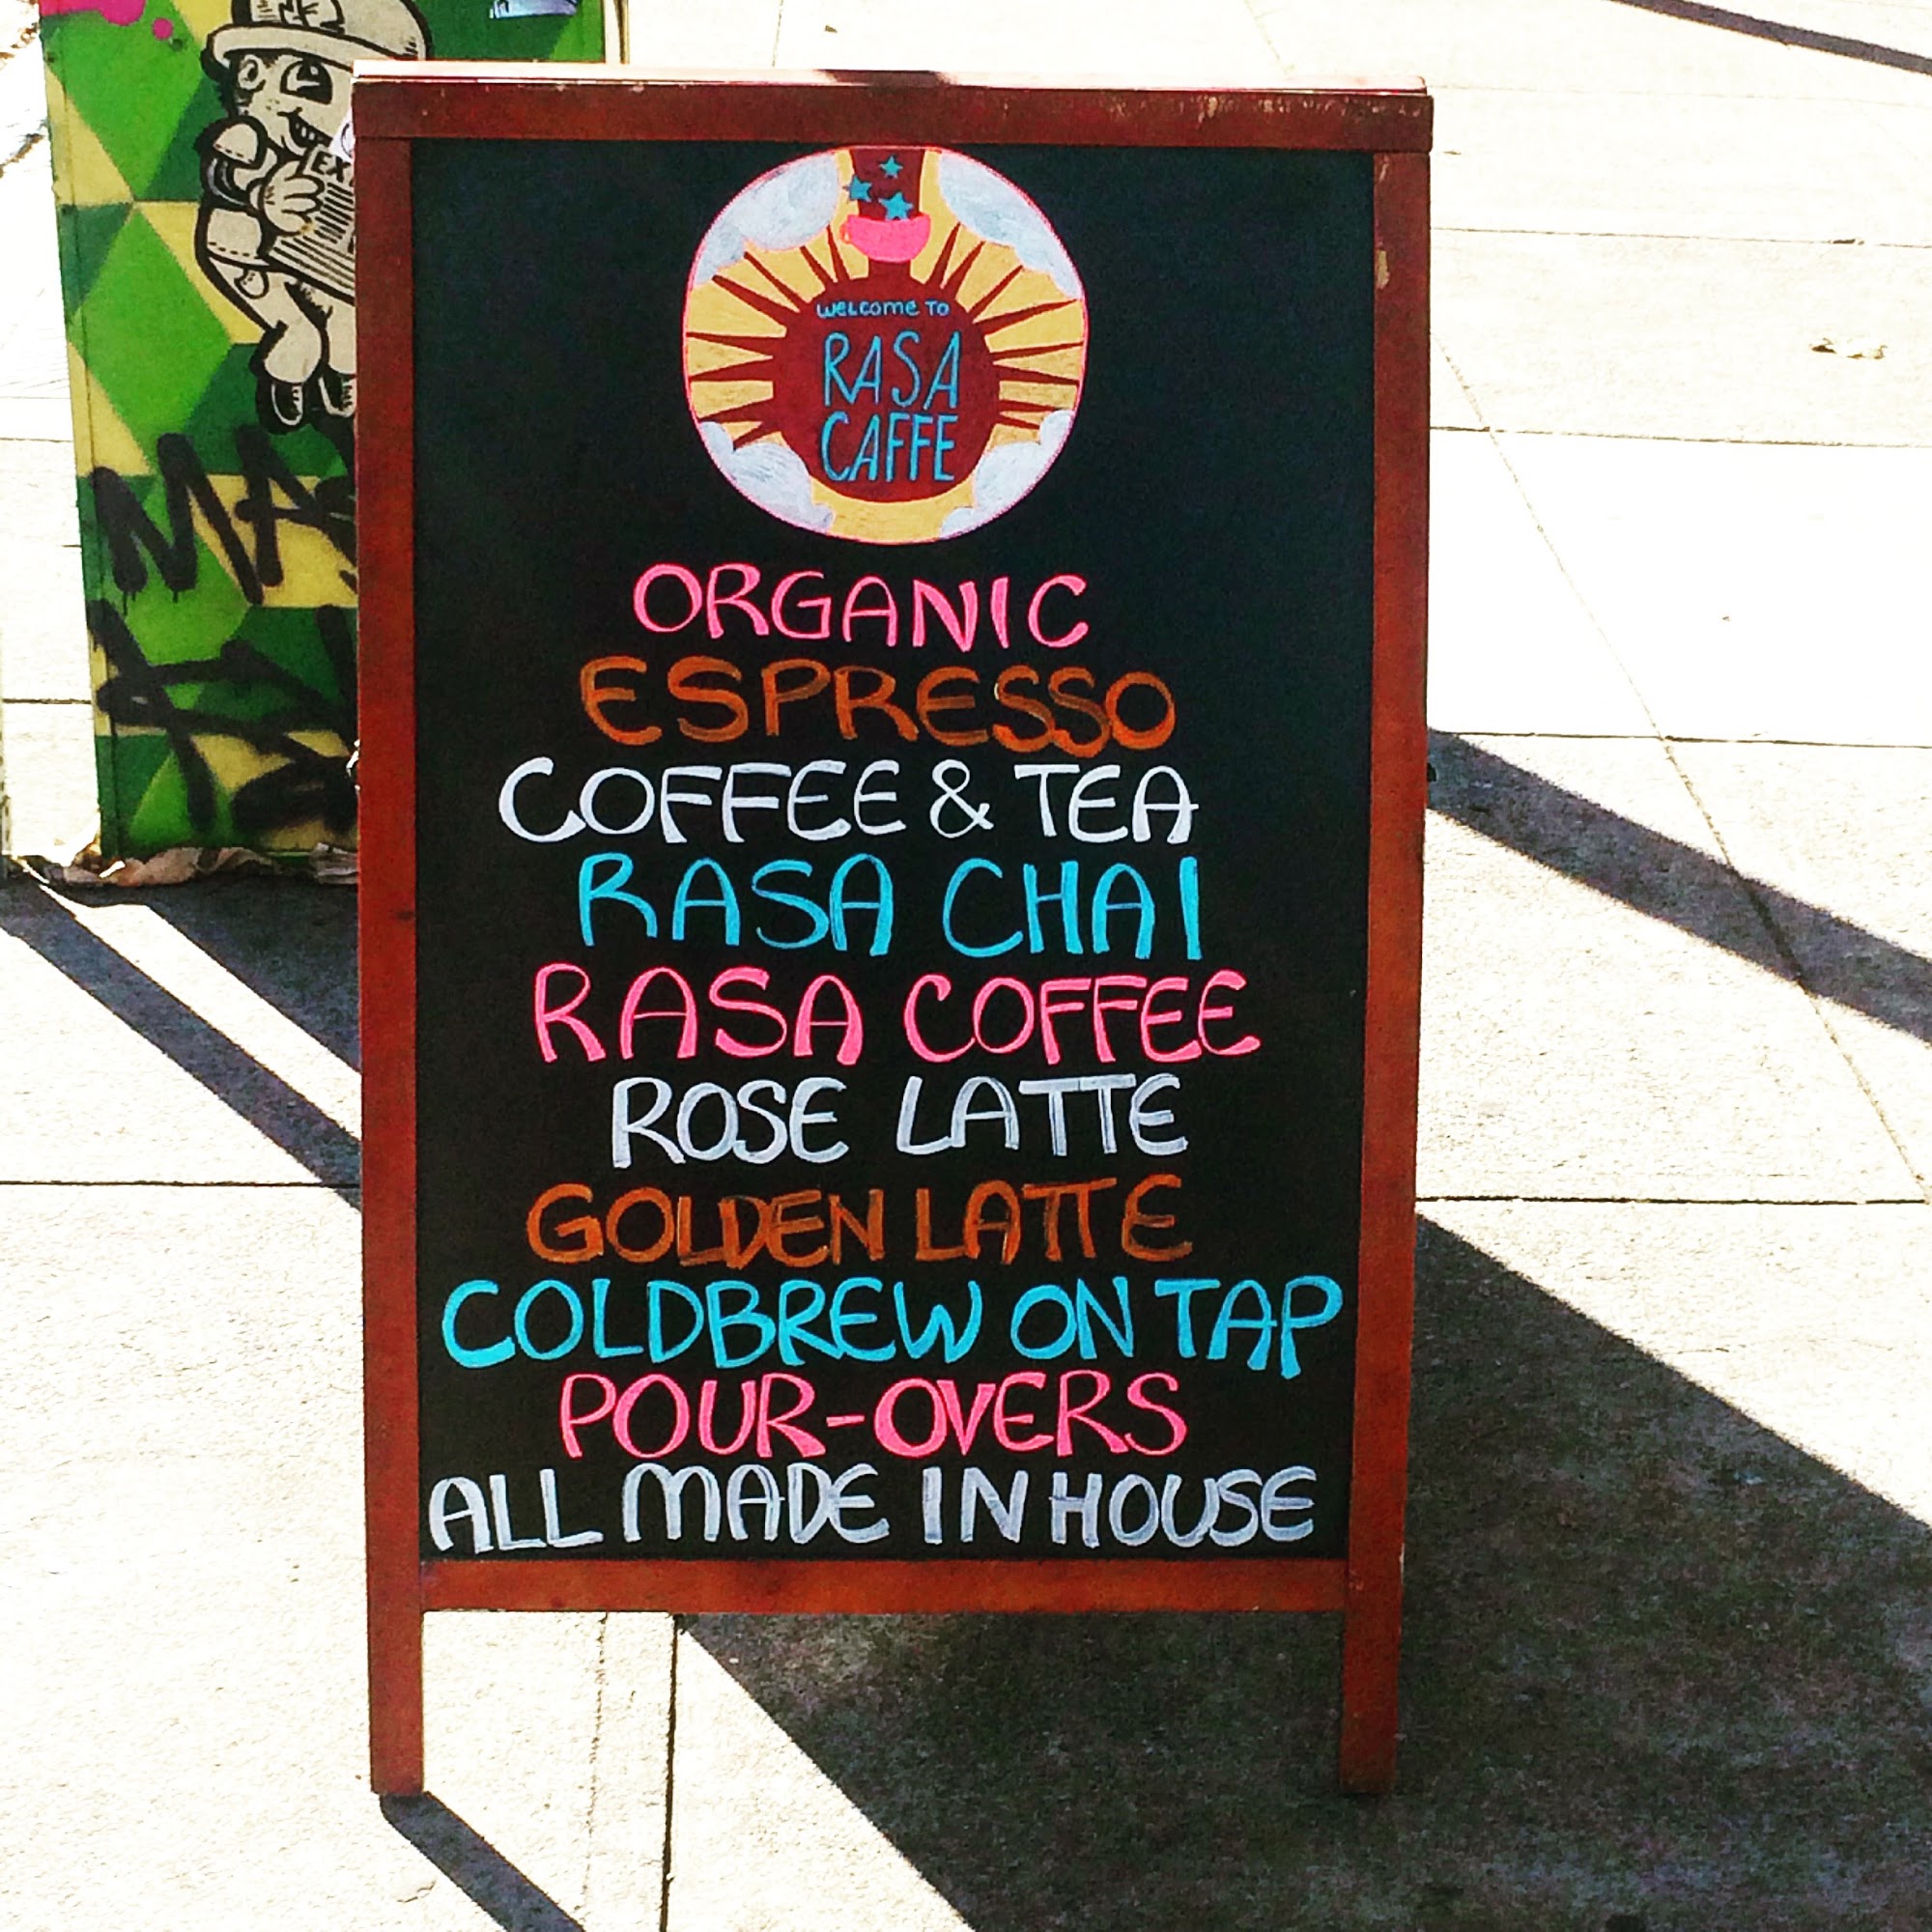 WELCOME TO
RASA
CAFFE
ORGANIC
ESPRESSO
COFFEE & TEA
RASA CHAI
RASA COFFEE
ROSE LATTE
GOLDEN LATTE
COLDBREW ON TAP
POUR-OVERS
ALL MADE IN HOUSE